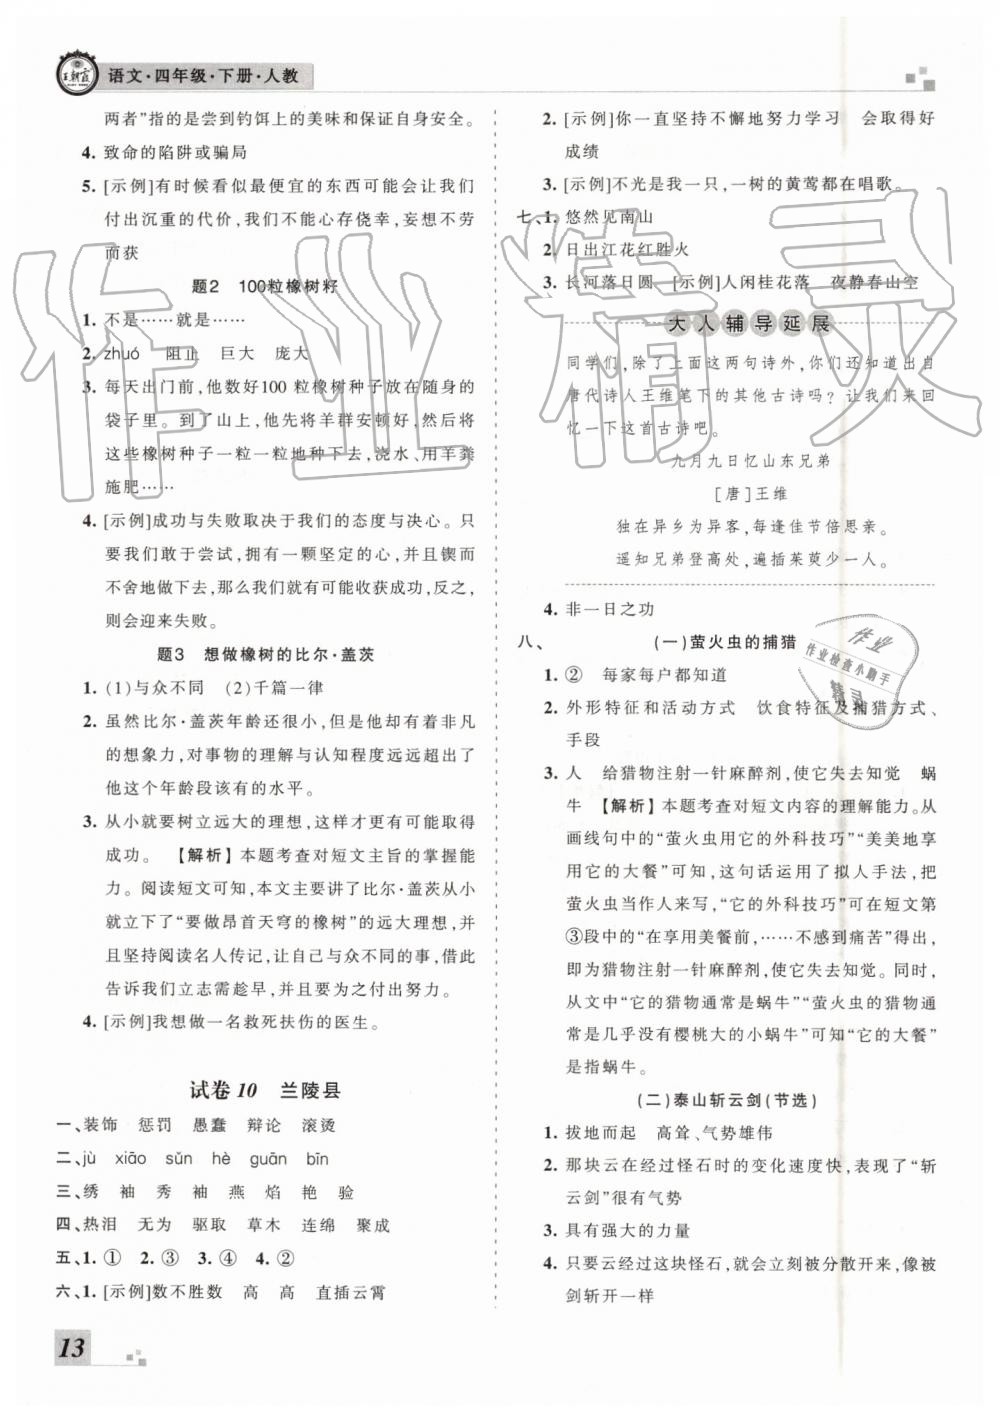 王朝霞
语文·四年级·下册·人教
两者”指的是尝到钓饵上的美味和保证自身安全。
4. 致命的陷阱或骗局
5. [示例]有时候看似最便宜的东西可能会让我们
付出沉重的代价,我们不能心存侥幸,妄想不劳
而获
题2 100粒橡树籽
1. 不是……就是……
2. zhuó 阻止 巨大 庞大
3. 每天出门前,他数好100粒橡树种子放在随身的
袋子里。到了山上,他先将羊群安顿好,然后将
这些橡树种子一粒一粒地种下去,浇水、用羊粪
施肥……
4. [示例]成功与失败取决于我们的态度与决心。只
要我们敢于尝试,拥有一颗坚定的心,并且锲而
不舍地做下去,那么我们就有可能收获成功,反之,
则会迎来失败。
题3 想做橡树的比尔·盖茨
1. (1)与众不同 (2)千篇一律
2. 虽然比尔·盖茨年龄还很小,但是他却有着非凡
的想象力,对事物的理解与认识程度远远超出了
他这个年龄段该有的水平。
3. 从小就要树立远大的理想,这样才更有可能取得
成功。 【解析】本题考查对短文主旨的掌握能
力。阅读短文可知,本文主要讲了比尔·盖茨从小
就立下了“要做昂首天穹的橡树”的远大理想,并
且坚持阅读名人传记,让自己与众不同的事,借此
告诉我们立志需趁早,并且要为此付出努力。
4. [示例]我想做一名救死扶伤的医生。
试卷10 兰陵县
一、装饰 惩罚 愚蠢 辩论 滚烫
二、jù xiāo sǔn hè guān bīn
三、绣 袖 秀 袖 燕 焰 艳 验
四、热泪 无为 驱取 草木 连绵 聚成
五、1. ① 2. ③ 3. ④ 4. ②
六、1. [示例]数不胜数 高 高 直插云霄
13
2. [示例]你一直坚持不懈地努力学习 会取得好
成绩
3. [示例]不光是我一只,一树的黄莺都在唱歌。
七、1. 悠然见南山
2. 日出江花红胜火
3. 长河落日圆 [示例]人闲桂花落 夜静春山空
大人辅导延展
同学们,除了上面这两句诗外,你们还知道出自
唐代诗人王维笔下的其他古诗吗?让我们来回
忆一下这首古诗吧。
九月九日忆山东兄弟
[唐]王维
独在异乡为异客,每逢佳节倍思亲。
遥知兄弟登高处,遍插茱萸少一人。
4. 非一日之功
八、 (一)萤火虫的捕猎
1. ② 每家每户都知道
2. 外形特征和活动方式 饮食特征及捕猎方式、
手段
3. 人 给猎物注射一针麻醉剂,使它失去知觉 蜗
牛 【解析】本题考查对短文内容的理解能力。从
画线句中的“萤火虫用它的外科技巧”“美美地享
用它的大餐”可知,这句话运用了拟人手法,把
萤火虫当作人来写,“它的外科技巧”可在短文第
③段中的“在享用美餐前,……不感到痛苦”得出,
即为给猎物注射一针麻醉剂,使它失去知觉。同时,
从文中“它的猎物通常是蜗牛”“萤火虫的猎物通
常是几乎没有樱桃大的小蜗牛”可知“它的大餐”
是指蜗牛。
(二)泰山斩云剑(节选)
1. 拔地而起 高耸、气势雄伟
2. 那块云在经过怪石时的变化速度快,表现了“斩
云剑”很有气势
3. 具有强大的力量
4. 只要云经过这块怪石,就会立刻被分散开来,像被
剑斩开一样
作业精灵
作业
作业检查小助手
精灵